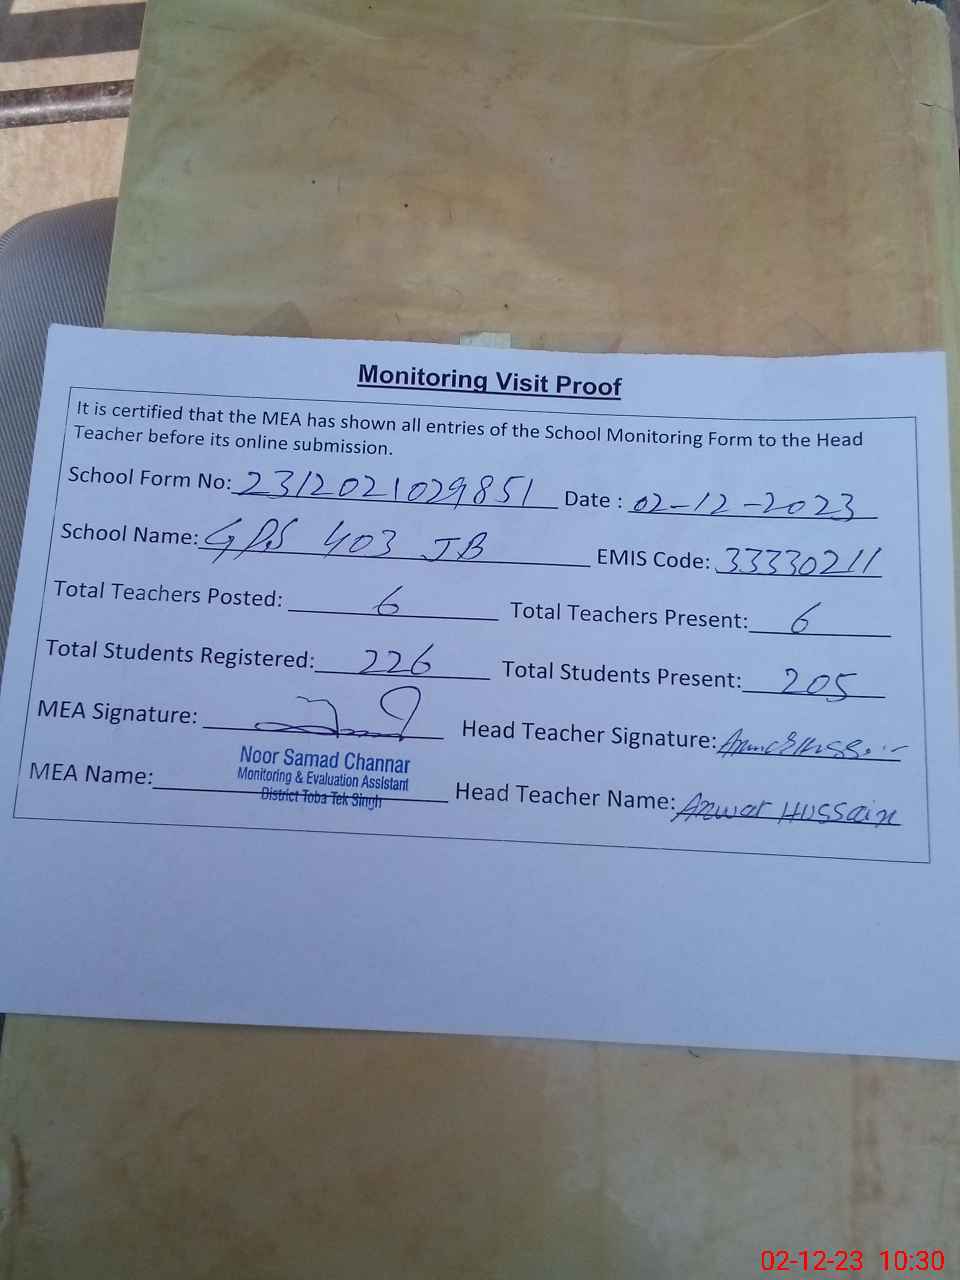 Monitoring Visit Proof
It is certified that the MEA has shown all entries of the School Monitoring Form to the Head
Teacher before its online submission.
School Form No: 2312021029851 Date : 02-12-2023
School Name: GPS 403 JB EMIS Code: 33330211
Total Teachers Posted: 6 Total Teachers Present: 6
Total Students Registered: 226 Total Students Present: 205
MEA Signature: Head Teacher Signature:
Noor Samad Channar
Monitoring & Evaluation Assistant
District Toba Tek Singh
MEA Name: Head Teacher Name: Anwar Hussain
02-12-23 10:30